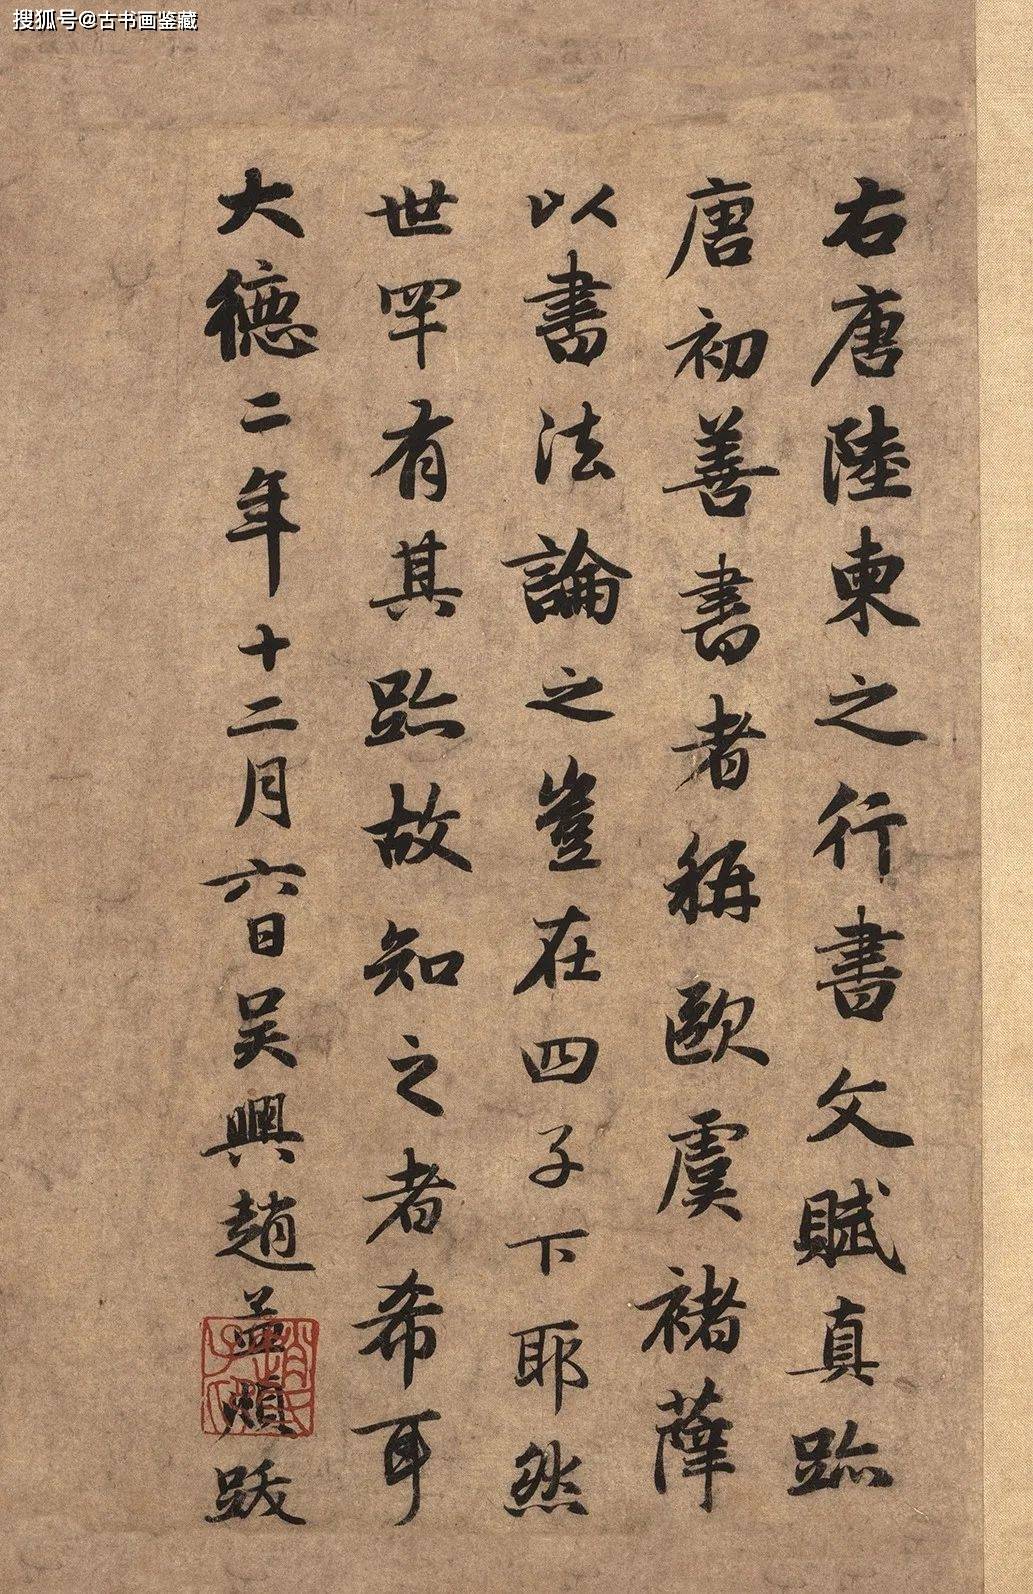 搜狐号@古书画鉴藏
右唐陸柬之行書文賦真跡
唐初善書者稱歐虞褚薛
以書法論之豈在四子下耶然
世罕有其跡故知之者希耳
大德二年十二月六日吴興趙孟頫跋
趙氏子昂